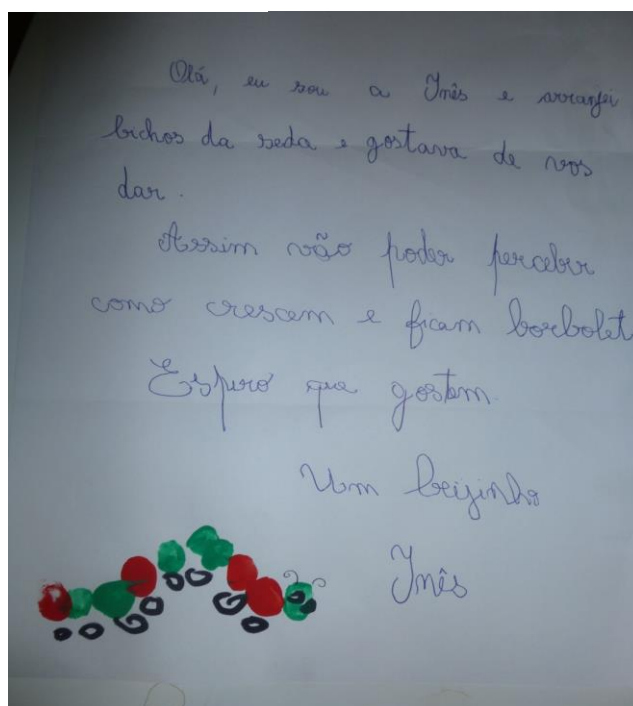 Olá, eu sou a Inês e arranjei
bichos da seda e gostava de vos
dar.
Assim vão poder perceber
como crescem e ficam borbolet
Espero que gostem.
Um beijinho
Inês